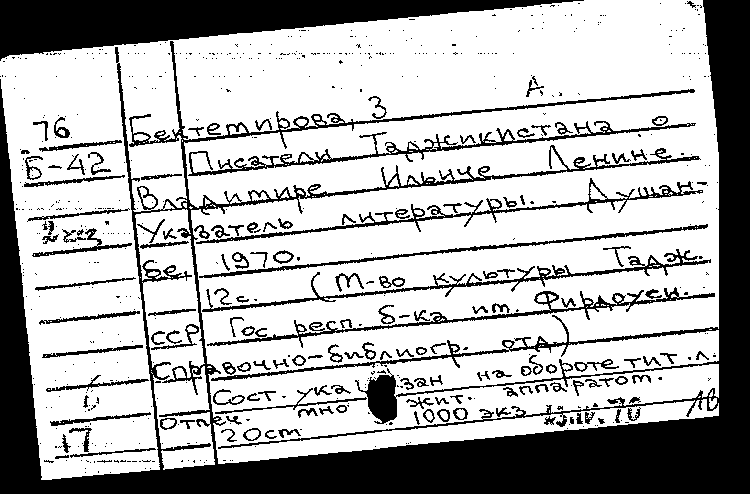 А.
76 Бектемирова, З
Б-42 Писатели Таджикистана о
Владимире Ильиче Ленине.
2экз Указатель литературы. Душан-
бе, 1970.
12с. (М-во культуры Тадж.
ССР Гос. респ. б-ка им. Фирдоуси.
Справочно-библиогр. отд.)
Сост. указан на обороте тит. л.
Отпеч. множит. аппаратом.
17 20см 1000 экз